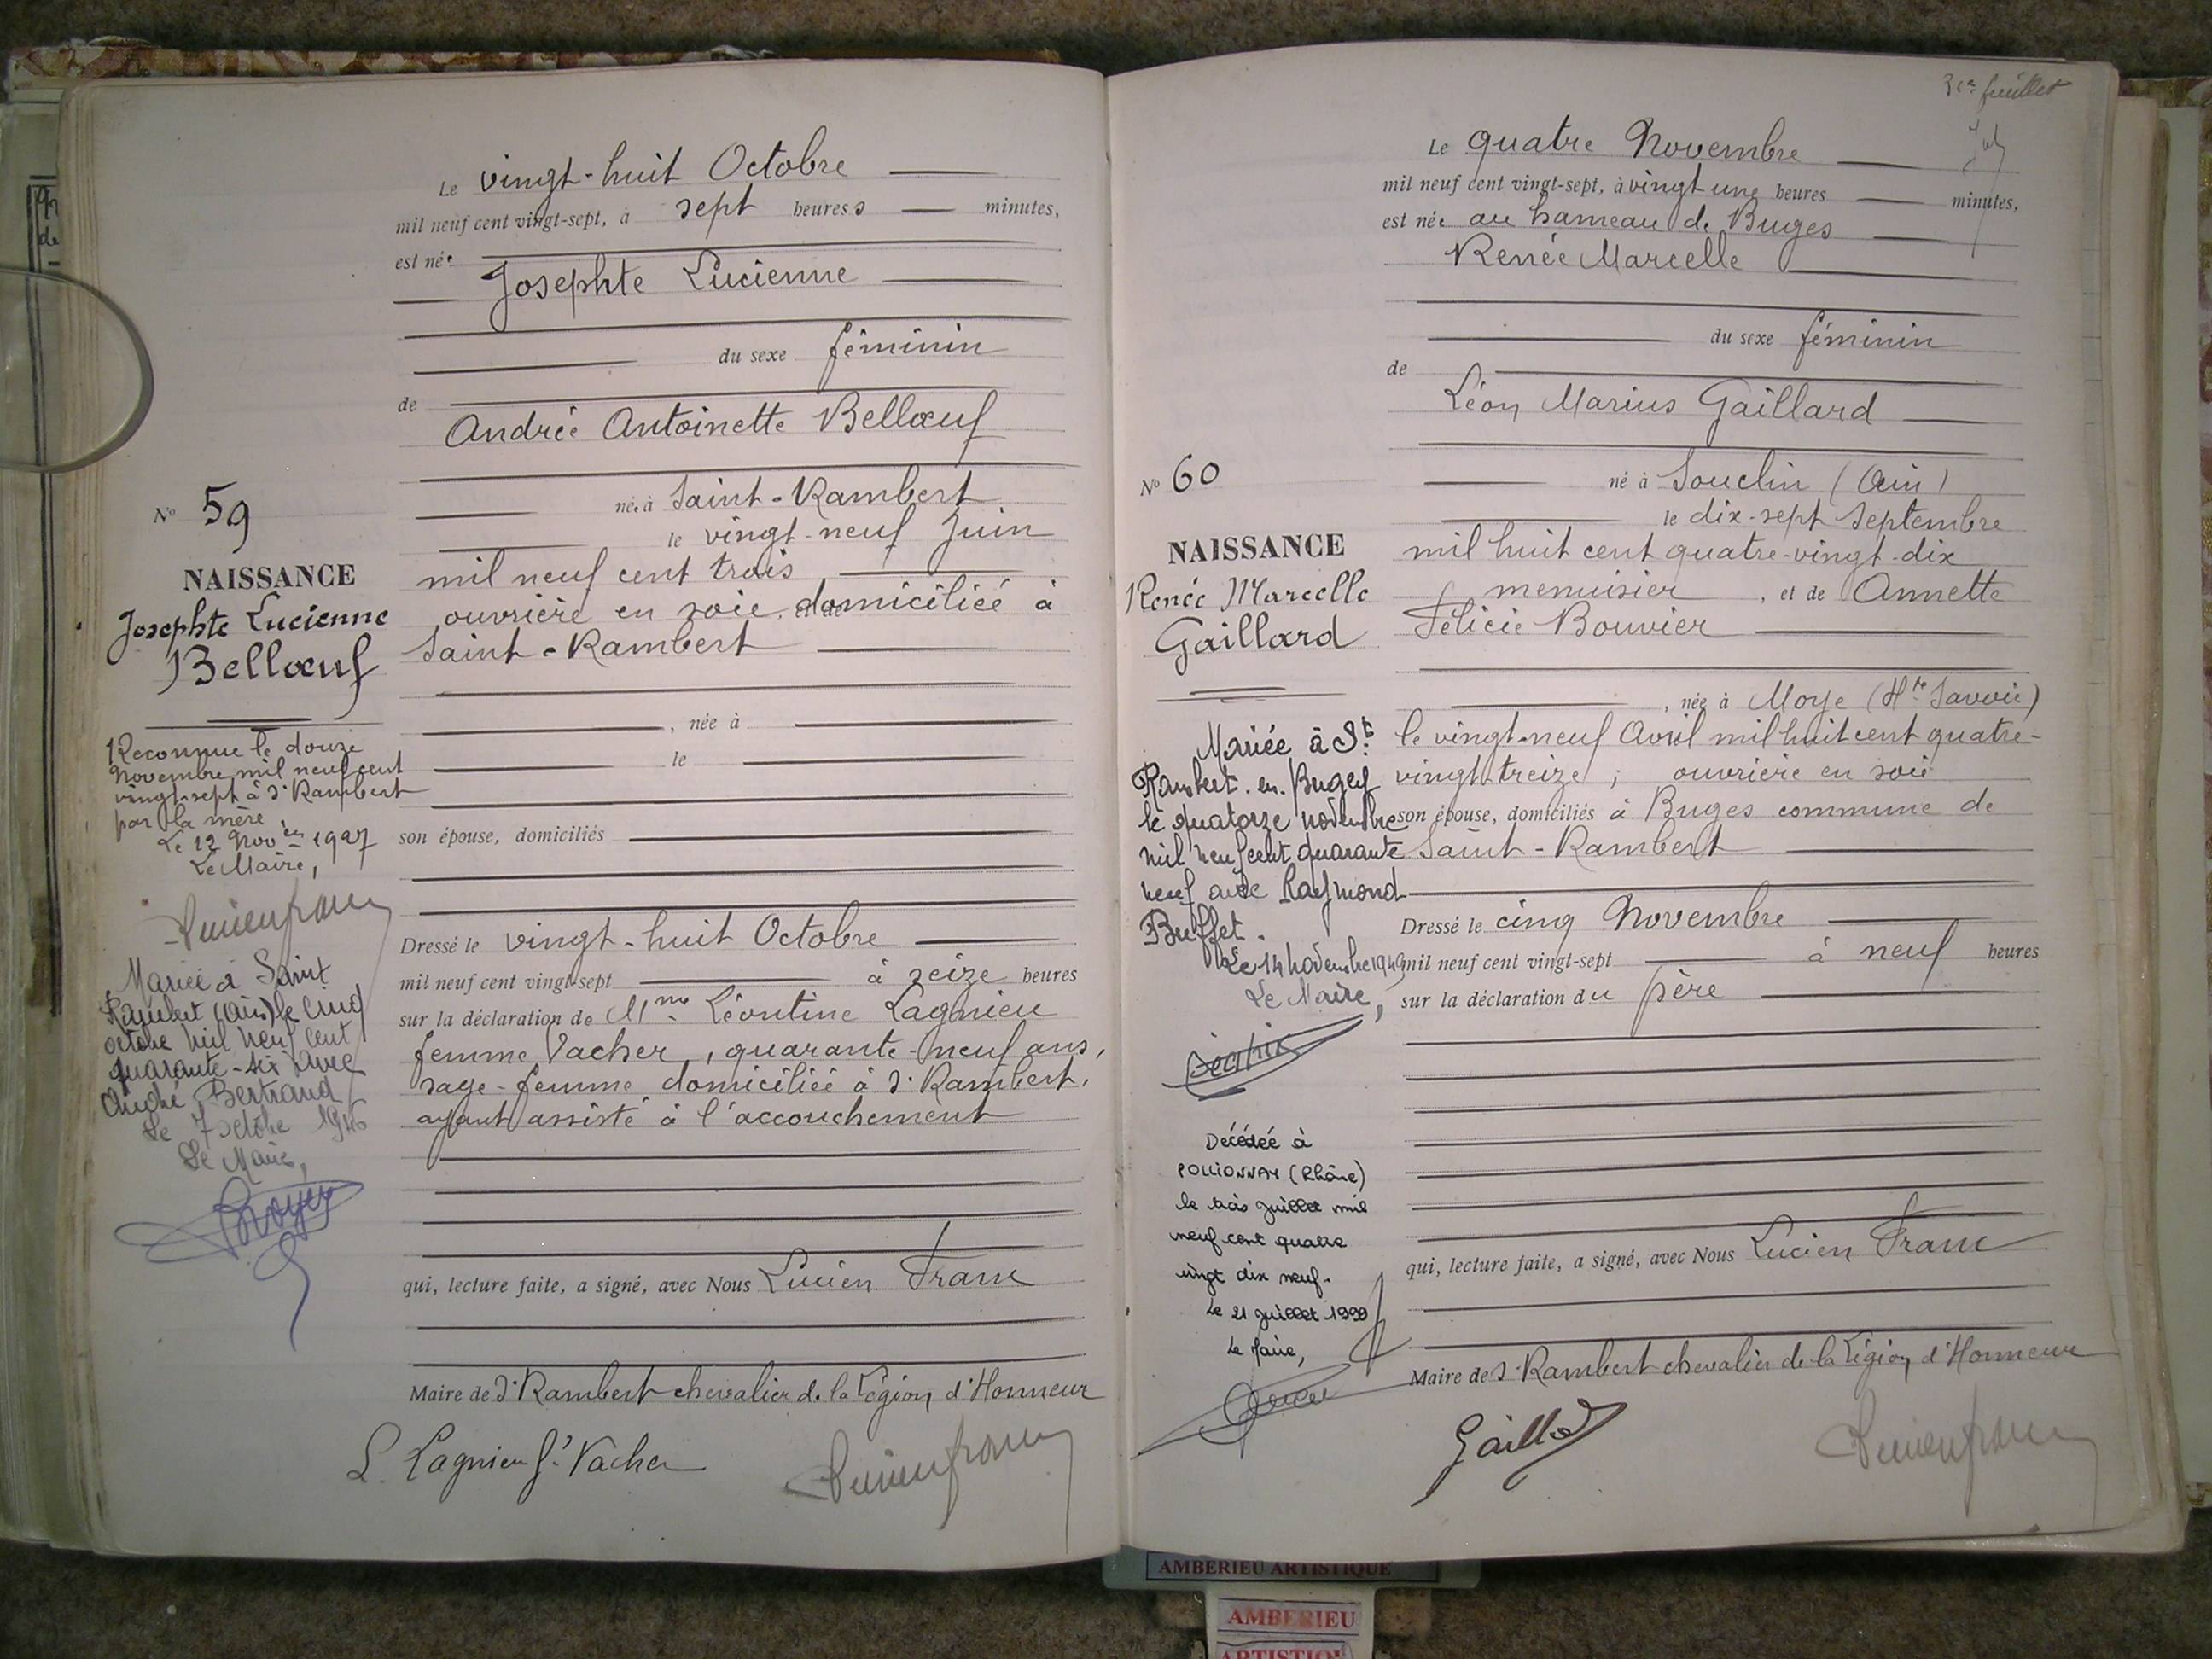 Le vingt-huit Octobre
mil neuf cent vingt-sept, à sept heures minutes,
est née
Josephte Lucienne
du sexe féminin
de
Andrée Antoinette Bellœuf
née à Saint-Rambert
le vingt-neuf Juin
mil neuf cent trois
ouvrière en soie domiciliée à
Saint-Rambert
, née à
le
son épouse, domiciliés
Dressé le vingt-huit Octobre
mil neuf cent vingt-sept à seize heures
sur la déclaration de Mme Léontine Lagnieu
femme Vacher, quarante-neuf ans,
sage-femme domiciliée à St Rambert,
ayant assisté à l'accouchement
qui, lecture faite, a signé, avec Nous Lucien Franc
Maire de St Rambert chevalier de la Légion d'Honneur
L. Lagnieu f. Vacher
No 59
NAISSANCE
Josephte Lucienne
Bellœuf
Reconnue le douze
Novembre mil neuf cent
vingt-sept à St Rambert
par la mère
Le 12 Nov 1927
Le Maire,
Mariée à Saint
Rambert (Ain) le cinq
octobre mil neuf cent
quarante-six avec
André Bertrand
Le 7 octobre 1946
Le Maire,
feuillet
Le quatre Novembre
mil neuf cent vingt-sept, à vingt une heures minutes,
est née au hameau de Buges
Renée Marcelle
du sexe féminin
de
Léon Marius Gaillard
né à Souclin (Ain)
le dix-sept Septembre
mil huit cent quatre-vingt-dix
menuisier, et de Annette
Félicie Bouvier
, née à Moye (Hte Savoie)
le vingt-neuf Avril mil huit cent quatre-
vingt-treize ; ouvrière en soie
son épouse, domiciliés à Buges commune de
Saint-Rambert
Dressé le cinq Novembre
mil neuf cent vingt-sept à neuf heures
sur la déclaration du père
qui, lecture faite, a signé, avec Nous Lucien Franc
Maire de St Rambert chevalier de la Légion d'Honneur
Gaillard
No 60
NAISSANCE
Renée Marcelle
Gaillard
Mariée à St
Rambert-en-Bugey
le quatorze novembre
mil neuf cent quarante
neuf avec Raymond
Buffet.
Le 14 novembre 1949
Le Maire,
Décédée à
POLLIONNAY (Rhône)
le trois juillet mil
neuf cent quatre
vingt dix neuf.
Le 21 juillet 1999
Le Maire,
AMBERIEU ARTISTIQUE
AMBERIEU
ARTISTIQUE